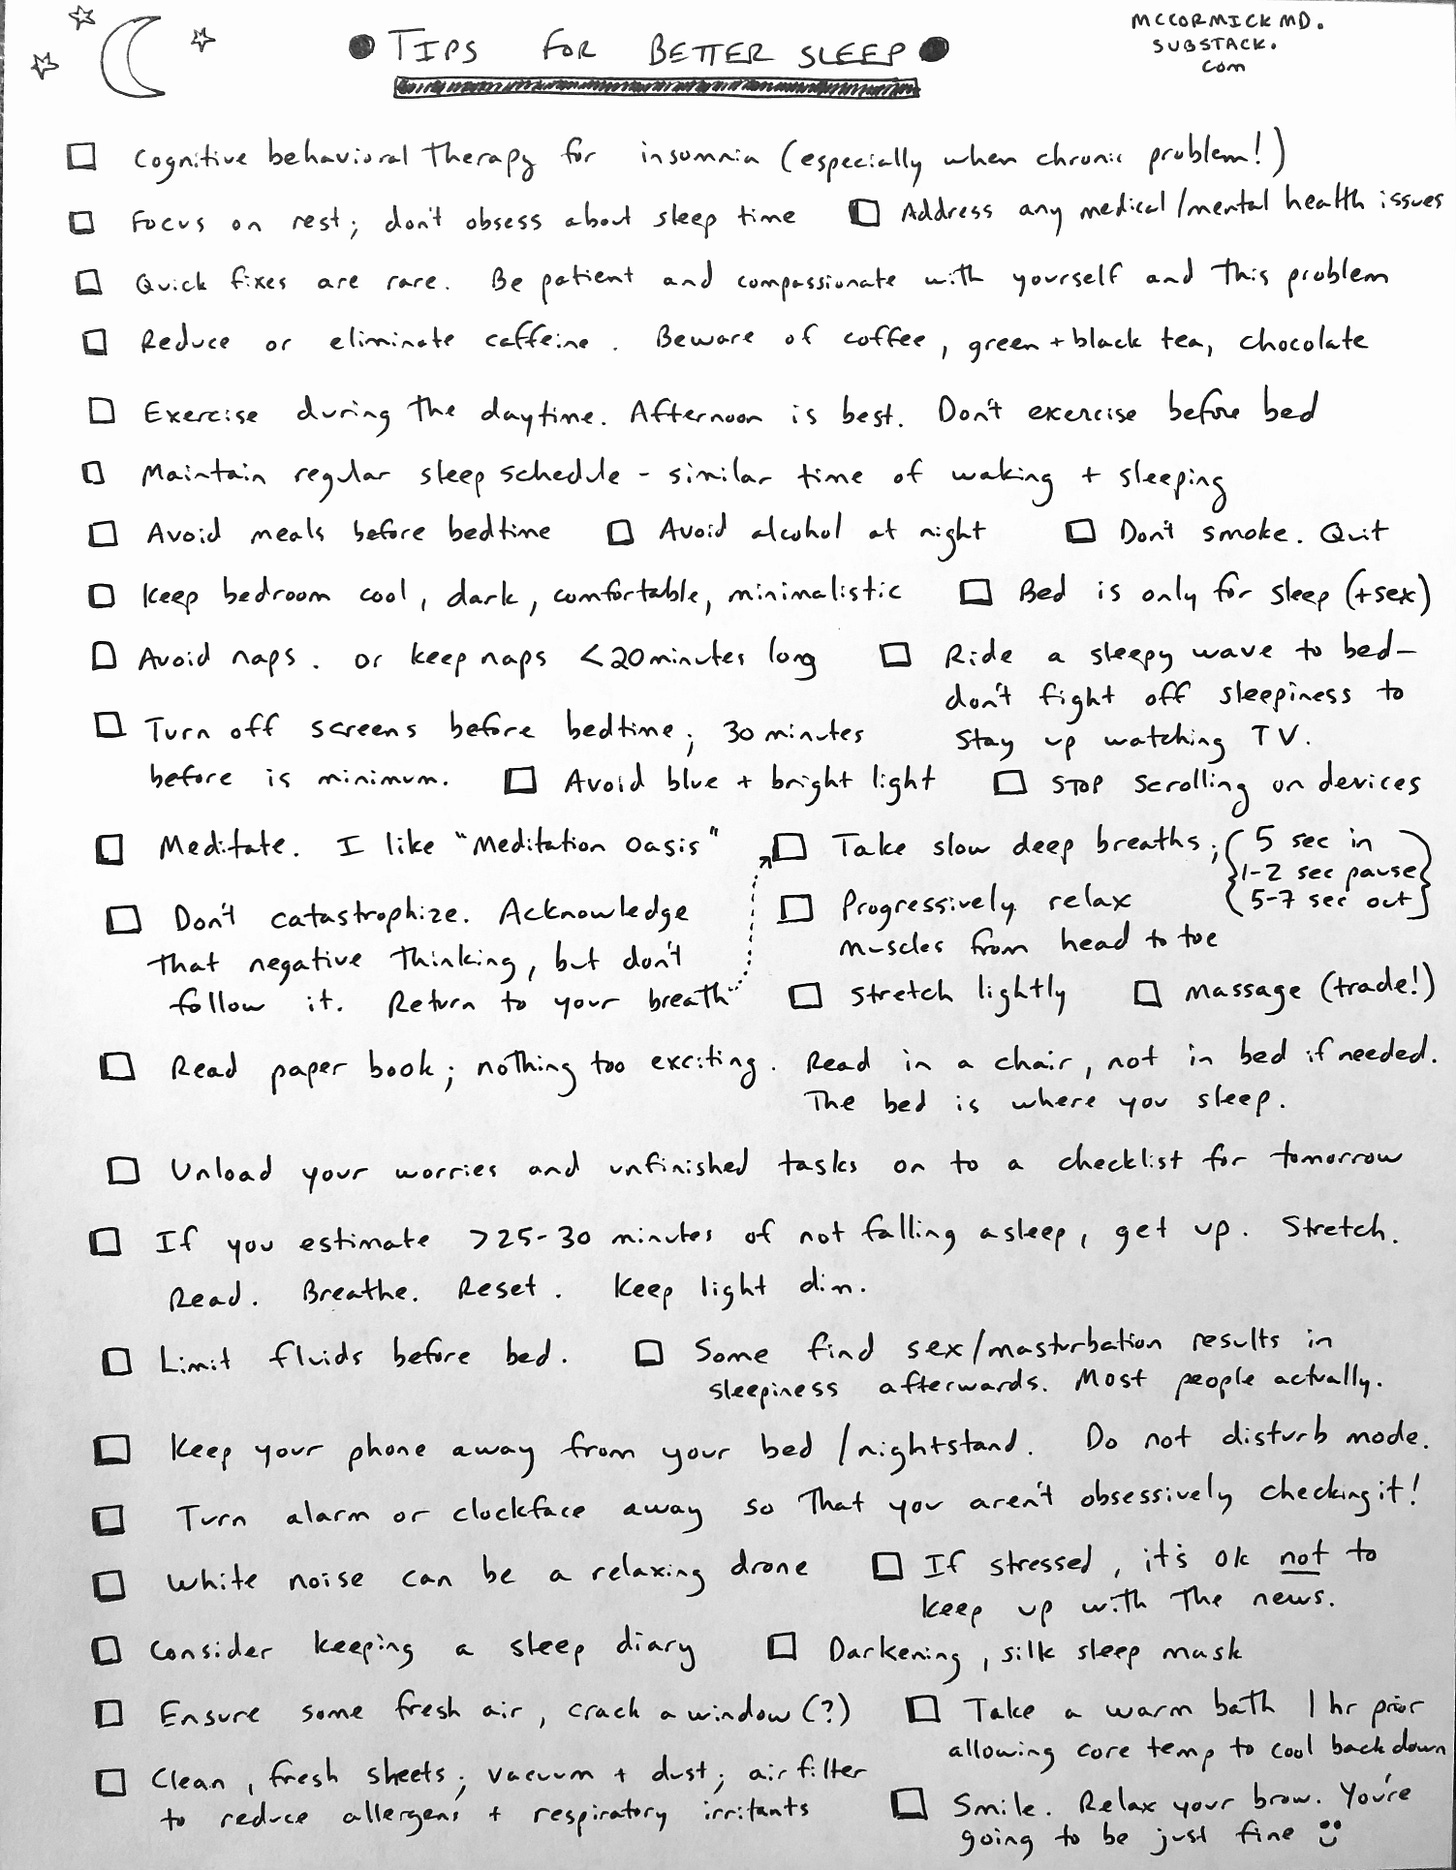 • TIPS FOR BETTER SLEEP •
MCCORMICKMD.
SUBSTACK.
com
☐ Cognitive behavioral therapy for insomnia (especially when chronic problem!)
☐ Focus on rest; don't obsess about sleep time ☐ Address any medical/mental health issues
☐ Quick fixes are rare. Be patient and compassionate with yourself and this problem
☐ Reduce or eliminate caffeine. Beware of coffee, green + black tea, chocolate
☐ Exercise during the daytime. Afternoon is best. Don't exercise before bed
☐ Maintain regular sleep schedule - similar time of waking + sleeping
☐ Avoid meals before bedtime ☐ Avoid alcohol at night ☐ Don't smoke. Quit
☐ Keep bedroom cool, dark, comfortable, minimalistic ☐ Bed is only for sleep (+sex)
☐ Avoid naps. or keep naps <20 minutes long
☐ Ride a sleepy wave to bed-
don't fight off sleepiness to
stay up watching TV.
☐ Turn off screens before bedtime; 30 minutes
before is minimum. ☐ Avoid blue + bright light ☐ STOP scrolling on devices
☐ Meditate. I like "Meditation Oasis"
☐ Take slow deep breaths; (5 sec in
1-2 sec pause
5-7 sec out)
☐ Don't catastrophize. Acknowledge
that negative thinking, but don't
follow it. Return to your breath
☐ Progressively relax
muscles from head to toe
☐ Stretch lightly ☐ Massage (trade!)
☐ Read paper book; nothing too exciting. Read in a chair, not in bed if needed.
The bed is where you sleep.
☐ Unload your worries and unfinished tasks on to a checklist for tomorrow
☐ If you estimate >25-30 minutes of not falling asleep, get up. Stretch.
Read. Breathe. Reset. Keep light dim.
☐ Limit fluids before bed.
☐ Some find sex/masturbation results in
sleepiness afterwards. Most people actually.
☐ Keep your phone away from your bed/nightstand. Do not disturb mode.
☐ Turn alarm or clockface away so that you aren't obsessively checking it!
☐ White noise can be a relaxing drone
☐ If stressed, it's ok not to
keep up with the news.
☐ Consider keeping a sleep diary ☐ Darkening, silk sleep mask
☐ Ensure some fresh air, crack a window (?)
☐ Take a warm bath 1 hr prior
allowing core temp to cool back down
☐ Clean, fresh sheets; vacuum + dust; air filter
to reduce allergens + respiratory irritants
☐ Smile. Relax your brow. You're
going to be just fine